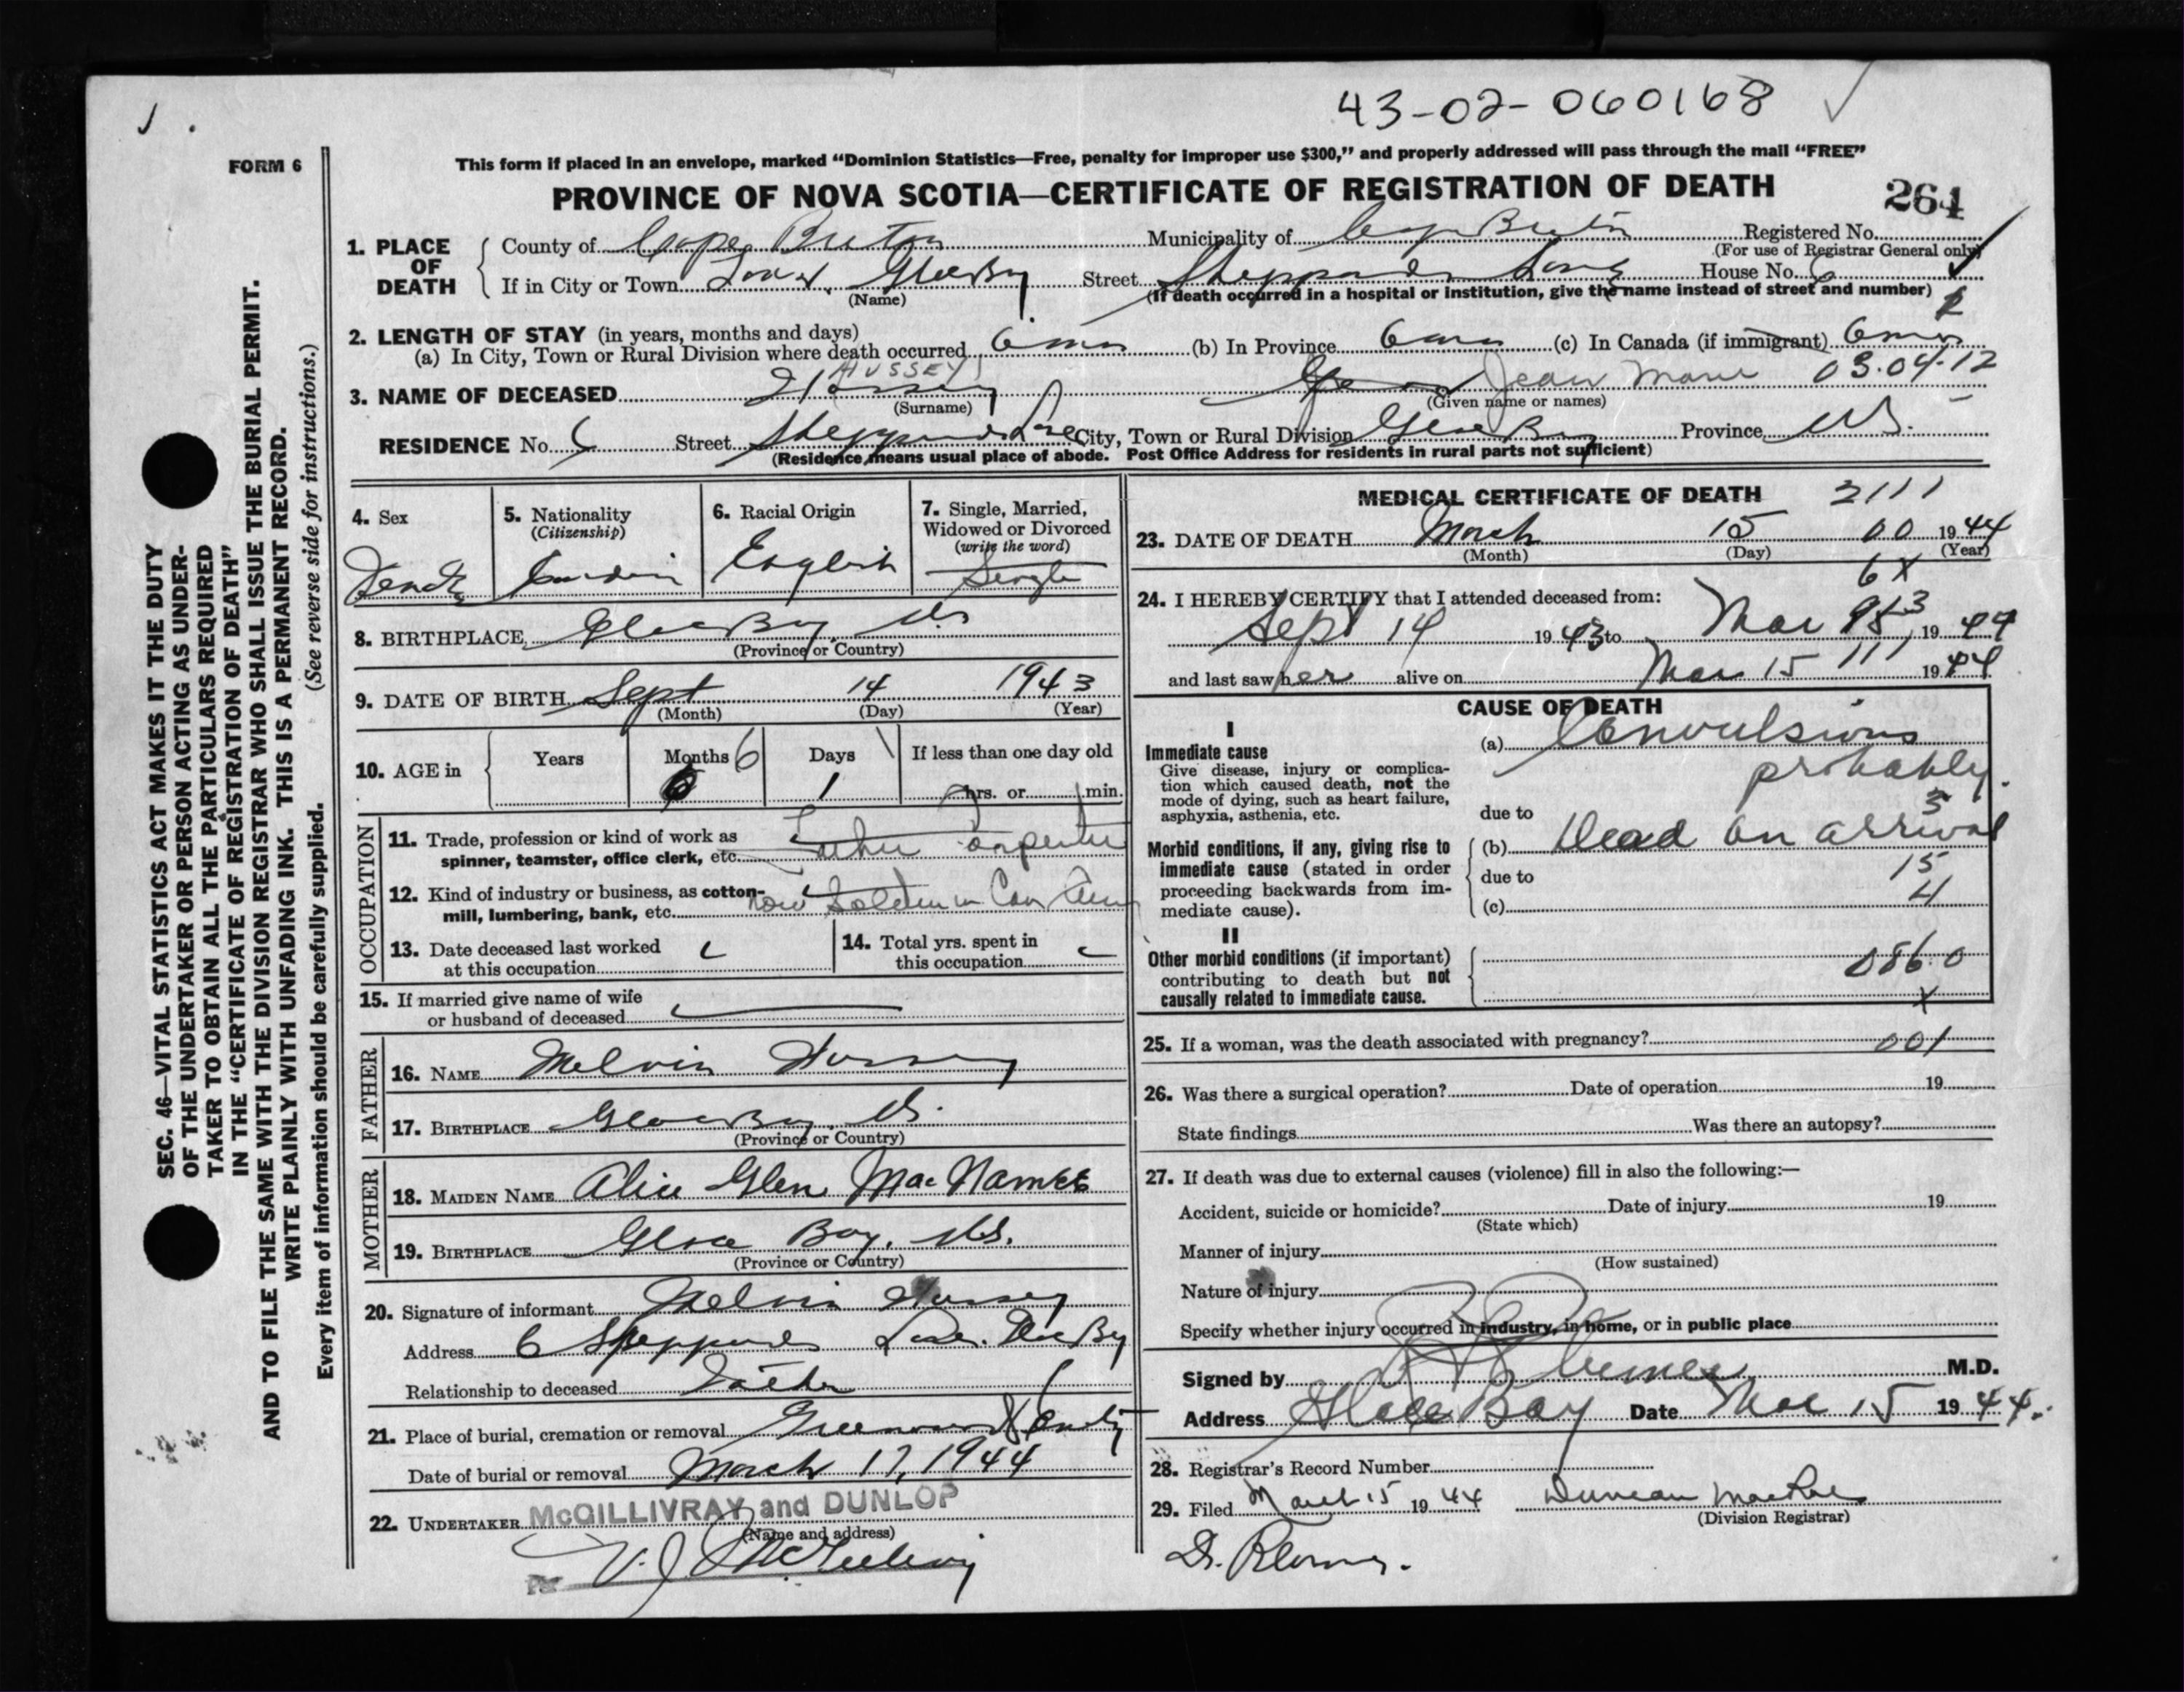 43-02-060168
FORM 6
This form if placed in an envelope, marked "Dominion Statistics—Free, penalty for improper use $300," and properly addressed will pass through the mail "FREE"
PROVINCE OF NOVA SCOTIA—CERTIFICATE OF REGISTRATION OF DEATH
264
1. PLACE OF DEATH
County of Cape Breton Municipality of Cape Breton Registered No.
(For use of Registrar General only)
If in City or Town Town Glace Bay Street Sheppards Lane House No. 6
(Name) (If death occurred in a hospital or institution, give the name instead of street and number)
2. LENGTH OF STAY (in years, months and days)
(a) In City, Town or Rural Division where death occurred 6 mos (b) In Province 6 mos (c) In Canada (if immigrant) 6 mos
HUSSEY
3. NAME OF DECEASED Hussey Jean Marie 03.04.12
(Surname) (Given name or names)
RESIDENCE No. 6 Street Sheppards Lane City, Town or Rural Division Glace Bay Province N.S.
(Residence means usual place of abode. Post Office Address for residents in rural parts not sufficient)
4. Sex Female
5. Nationality (Citizenship) Canadian
6. Racial Origin English
7. Single, Married, Widowed or Divorced (write the word) Single
8. BIRTHPLACE Glace Bay. N.S
(Province or Country)
9. DATE OF BIRTH Sept 14 1943
(Month) (Day) (Year)
10. AGE in Years Months 6 Days 1 If less than one day old
6 1 hrs. or min.
OCCUPATION
11. Trade, profession or kind of work as spinner, teamster, office clerk, etc. Father Carpenter
12. Kind of industry or business, as cotton-mill, lumbering, bank, etc. now Soldier in Can Army
13. Date deceased last worked at this occupation
14. Total yrs. spent in this occupation
15. If married give name of wife or husband of deceased
FATHER
16. NAME Melvin Hussey
17. BIRTHPLACE Glace Bay. N.S.
(Province or Country)
MOTHER
18. MAIDEN NAME Alice Glen MacNamee
19. BIRTHPLACE Glace Bay. N.S.
(Province or Country)
20. Signature of informant Melvin Hussey
Address 6 Sheppards Lane. Glace Bay
Relationship to deceased Father
21. Place of burial, cremation or removal Greenwood
Date of burial or removal March 17, 1944
22. UNDERTAKER McGILLIVRAY and DUNLOP
(Name and address)
Per
MEDICAL CERTIFICATE OF DEATH
23. DATE OF DEATH March 15 00 1944
(Month) (Day) (Year)
6X
24. I HEREBY CERTIFY that I attended deceased from:
Sept 14 1943 to Mar 1944
and last saw her alive on Mar 15 111 1944
CAUSE OF DEATH
I
Immediate cause
Give disease, injury or complication which caused death, not the mode of dying, such as heart failure, asphyxia, asthenia, etc.
(a) Convulsions
probably.
due to
Morbid conditions, if any, giving rise to immediate cause (stated in order proceeding backwards from immediate cause).
(b) Dead on arrival
due to
15
4
(c)
II
Other morbid conditions (if important) contributing to death but not causally related to immediate cause.
086.0
X
25. If a woman, was the death associated with pregnancy? 001
26. Was there a surgical operation? Date of operation 19
State findings Was there an autopsy?
27. If death was due to external causes (violence) fill in also the following:—
Accident, suicide or homicide? Date of injury 19
(State which)
Manner of injury
(How sustained)
Nature of injury
Specify whether injury occurred in industry, in home, or in public place
Signed by M.D.
Address Glace Bay Date Mar 15 1944.
28. Registrar's Record Number
29. Filed March 15 1944 Duncan MacRae
(Division Registrar)
Dr.
SEC. 46—VITAL STATISTICS ACT MAKES IT THE DUTY
OF THE UNDERTAKER OR PERSON ACTING AS UNDER-
TAKER TO OBTAIN ALL THE PARTICULARS REQUIRED
IN THE "CERTIFICATE OF REGISTRATION OF DEATH"
AND TO FILE THE SAME WITH THE DIVISION REGISTRAR WHO SHALL ISSUE THE BURIAL PERMIT.
WRITE PLAINLY WITH UNFADING INK. THIS IS A PERMANENT RECORD.
Every item of information should be carefully supplied. (See reverse side for instructions.)